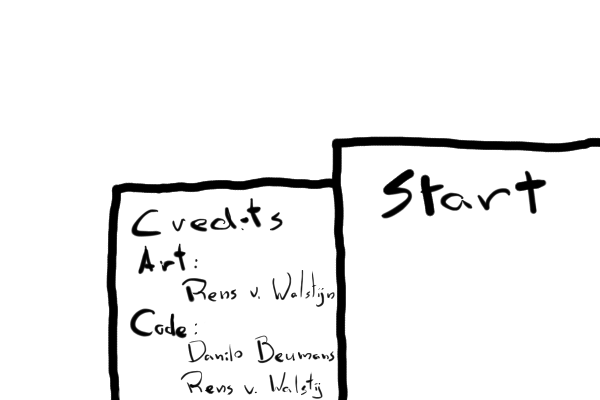 Start
Credits
Art:
Rens v. Walstijn
Code:
Danilo Beumans
Rens v. Walstij